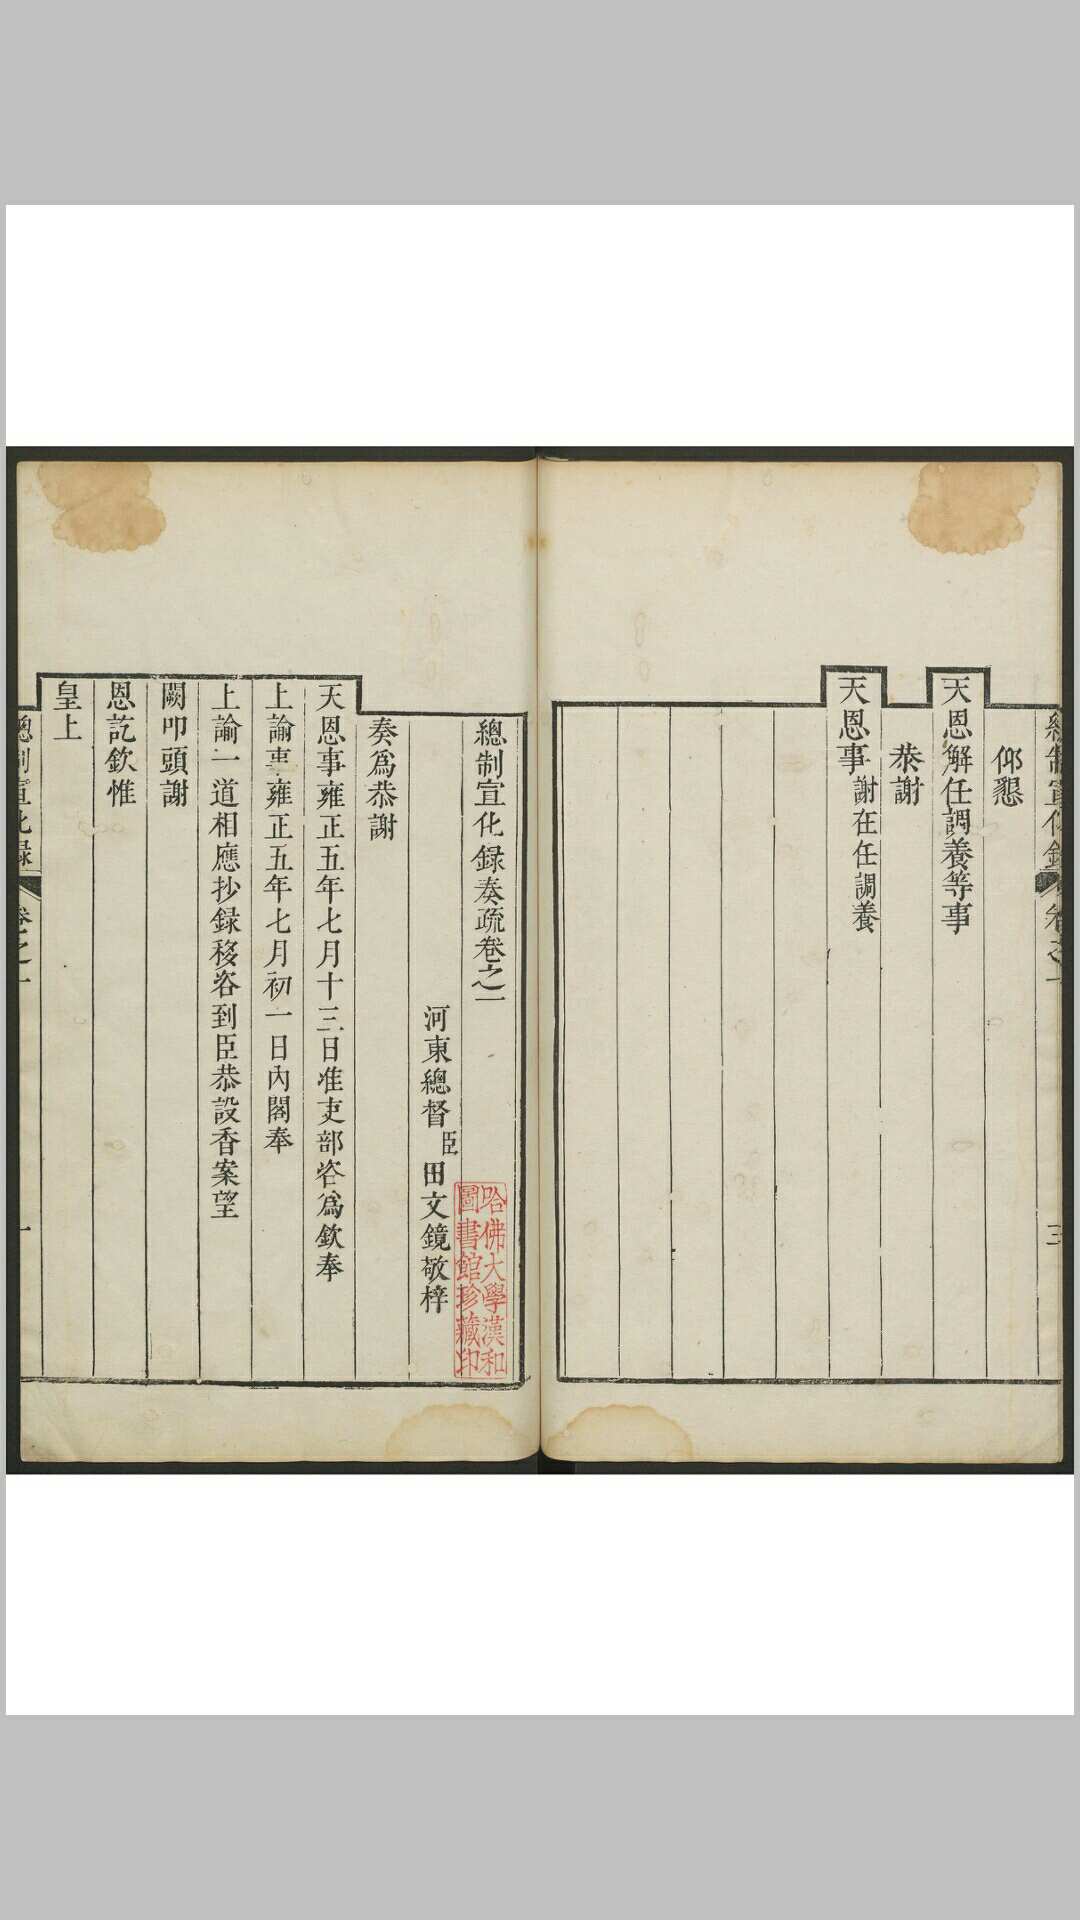 仰懇
天恩解任調養等事
恭謝
天恩事謝在任調養
三
總制宣化錄奏疏卷之一
河東總督臣田文鏡敬梓
哈佛大學漢和
圖書館珍藏印
奏為恭謝
天恩事雍正五年七月十三日准吏部咨為欽奉
上諭事雍正五年七月初一日內閣奉
上諭一道相應抄錄移咨到臣恭設香案望
闕叩頭謝
恩訖欽惟
皇上
總制宣化錄 卷之一 一